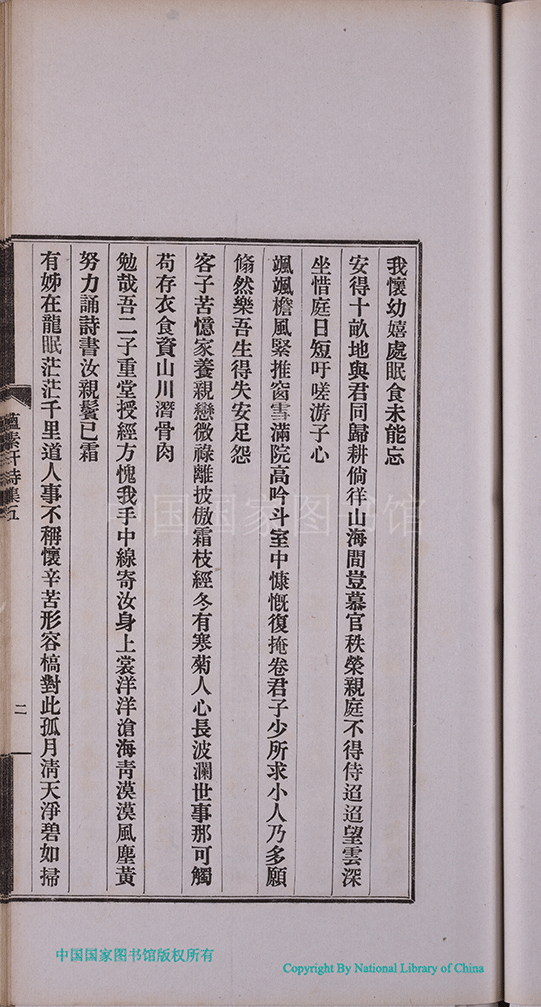 我懷幼嬉處眠食未能忘
安得十畝地與君同歸耕倘徉山海間豈慕官秩榮親庭不得侍迢迢望雲深
坐惜庭日短吁嗟游子心
颯颯檐風緊推窗雪滿院高吟斗室中慷慨復掩卷君子少所求小人乃多願
翛然樂吾生得失安足怨
客子苦憶家養親戀微祿離披傲霜枝經冬有寒菊人心長波瀾世事那可觸
苟存衣食資山川濳骨肉
勉哉吾二子重堂授經方愧我手中線寄汝身上裳洋洋滄海靑漠漠風塵黃
努力誦詩書汝親鬢已霜
有姊在龍眠茫茫千里道人事不稱懷辛苦形容槁對此孤月淸天淨碧如掃
蘊素軒詩集五
二
中国国家图书馆
中国国家图书馆版权所有
Copyright By National Library of China